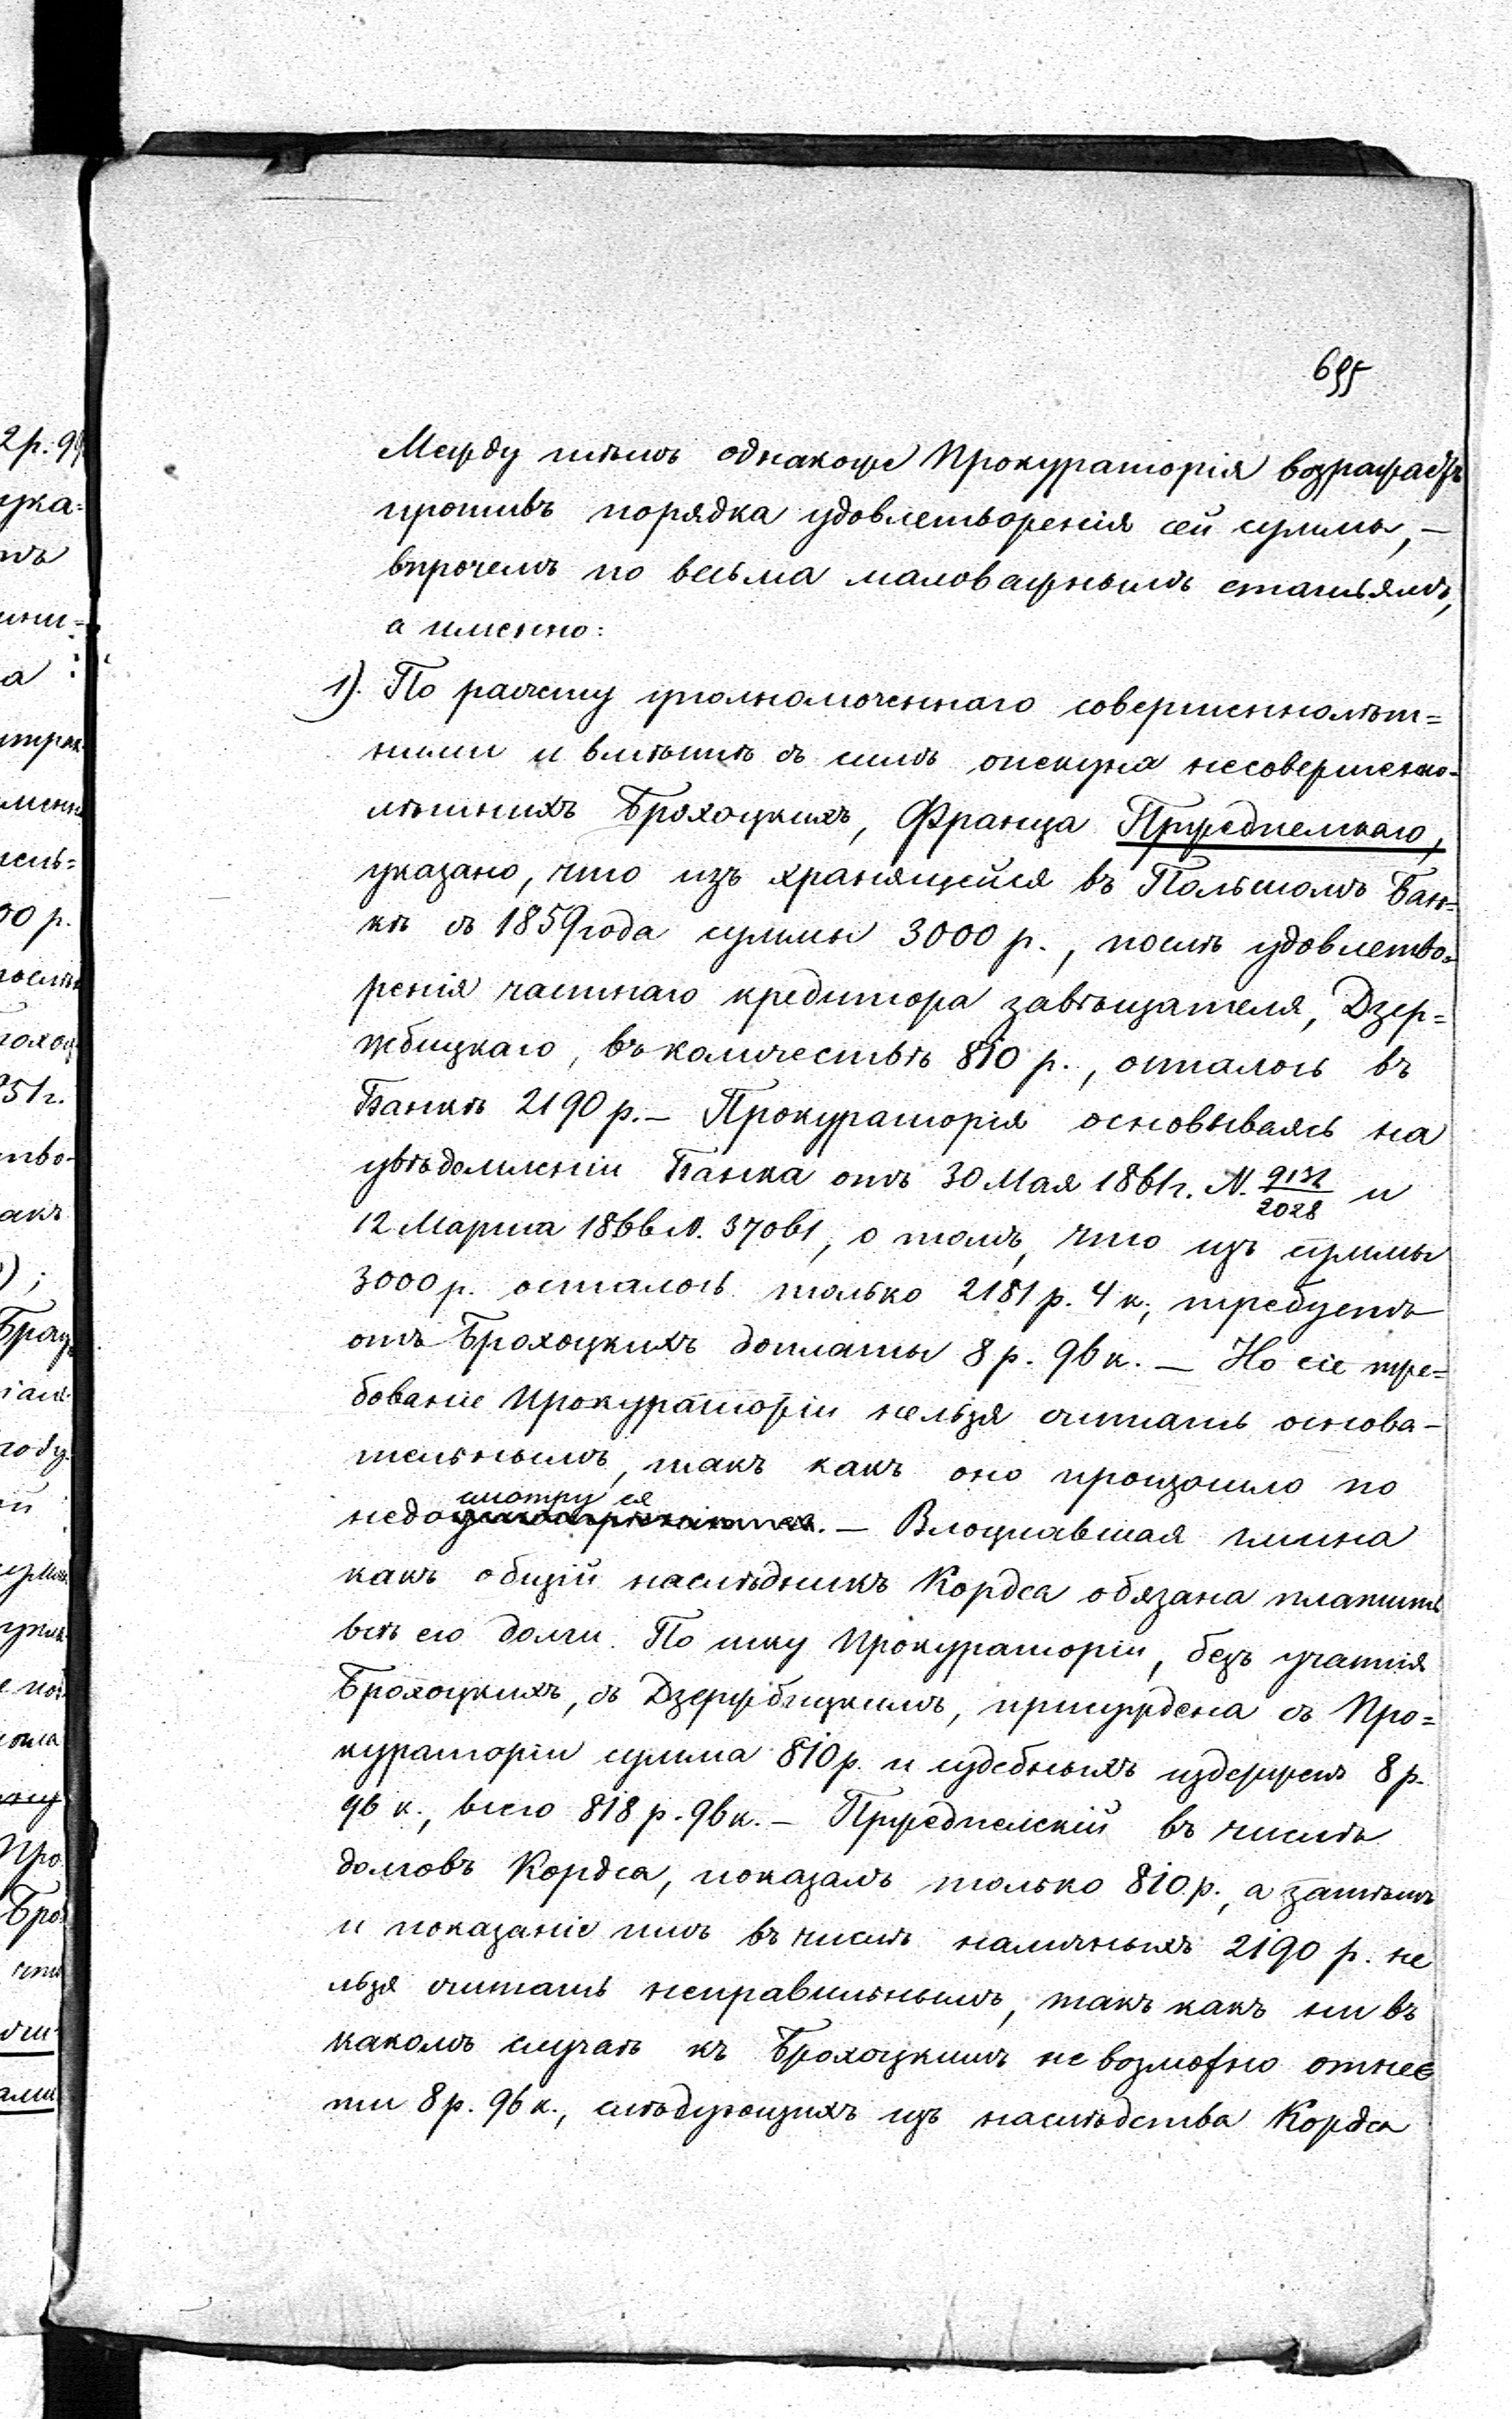 695
Между тѣмъ однакоже Прокураторія возражаетъ
противъ порядка удовлетворенія сей суммы, —
впрочемъ по весьма маловажнымъ статьямъ,
а именно:
1). По расчету уполномоченнаго совершеннолѣт=
ними и вмѣстѣ съ симъ опекуна несовершенно-
лѣтнихъ Брохоцкихъ, Франца Пржедпелскаго,
указано, что изъ хранящейся въ Польскомъ Бан=
кѣ съ 1859 года суммы 3000 р., послѣ удовлетво=
ренія частнаго кредитора завѣщателя, Дзер=
жбицкаго, въ количествѣ 810 р., осталось въ
Банкѣ 2190 р. — Прокураторія основываясь на
увѣдомленіи Банка отъ 30 Мая 1861 г. N. 9132/2028 и
12 Марта 1866 N. 37061, о томъ, что изъ суммы
3000 р. осталось только 2181 р. 4 к., требуетъ
отъ Брохоцкихъ доплаты 8 р. 96 к. — Но сіе тре=
бованіе Прокураторіи нельзя считать основа-
тельнымъ, такъ какъ оно произошло по
недосмотру ея. — Влоцлавшая гмина
какъ общій наслѣдникъ Кордса обязана платить
всѣ его долги. По иску Прокураторіи, безъ участія
Брохоцкихъ, съ Дзержбицкимъ, присуждена съ Про=
кураторіи сумма 810 р. и судебныхъ издержекъ 8 р.
96 к., всего 818 р. 96 к. — Пржедпелскій въ числѣ
долговъ Кордса, показалъ только 810 р., а затѣмъ
и показаніе имъ въ числѣ наличныхъ 2190 р. не
льзя считать неправильнымъ, такъ какъ ни въ
какомъ случаѣ къ Брохоцкимъ не возможно отнес
ти 8 р. 96 к., слѣдующихъ изъ наслѣдства Кордса